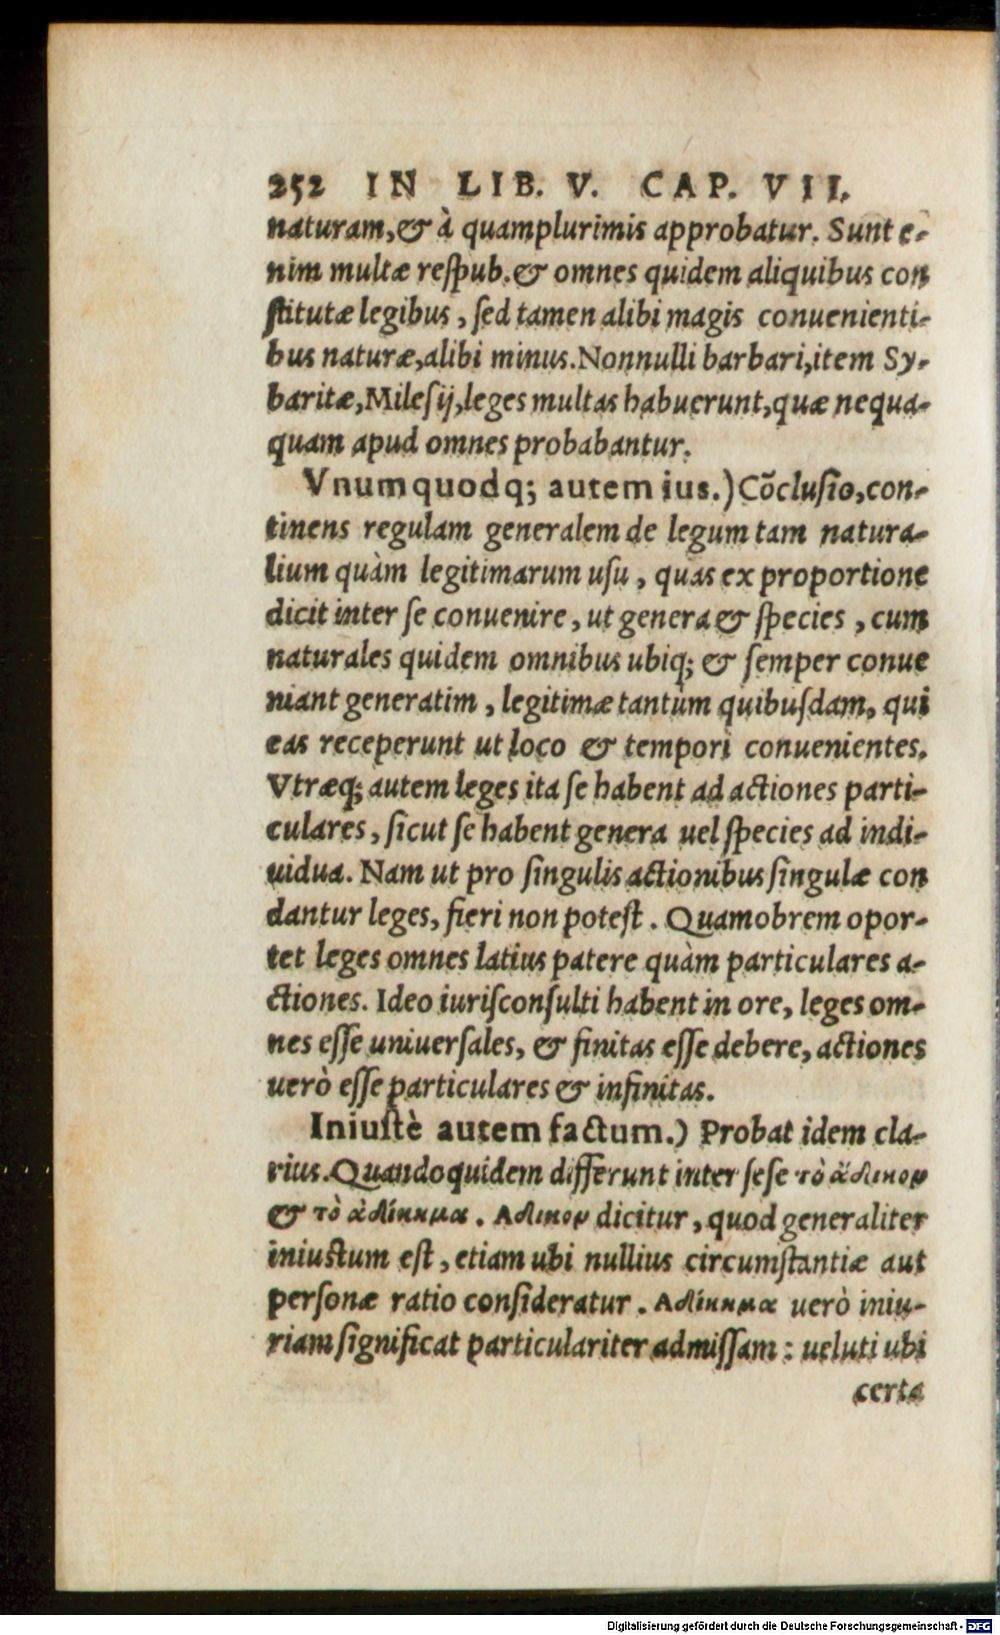 252 IN LIB. V. CAP. VII.
naturam, & à quamplurimis approbatur. Sunt e-
nim multæ respub. & omnes quidem aliquibus con
stitutæ legibus, sed tamen alibi magis conuenienti-
bus naturæ, alibi minus. Nonnulli barbari, item Sy-
baritæ, Milesij, leges multas habuerunt, quæ nequa-
quam apud omnes probabantur.
Vnumquodq; autem ius.) Cõclusio, con-
tinens regulam generalem de legum tam natura-
lium quàm legitimarum usu, quas ex proportione
dicit inter se conuenire, ut genera & species, cum
naturales quidem omnibus ubiq; & semper conue
niant generatim, legitimæ tantùm quibusdam, qui
eas receperunt ut loco & tempori conuenientes.
Vtræq; autem leges ita se habent ad actiones parti-
culares, sicut se habent genera uel species ad indi-
uidua. Nam ut pro singulis actionibus singulæ con
dantur leges, fieri non potest. Quamobrem opor-
tet leges omnes latius patere quàm particulares a-
ctiones. Ideo iurisconsulti habent in ore, leges om-
nes esse uniuersales, & finitas esse debere, actiones
uerò esse particulares & infinitas.
Iniustè autem factum.) Probat idem cla-
rius. Quandoquidem differunt inter sese τὸ ἄδικον
& τὸ ἀδίκημα. Αδικον dicitur, quod generaliter
iniustum est, etiam ubi nullius circumstantiæ aut
personæ ratio consideratur. Αδίκημα uerò iniu-
riam significat particulariter admissam: ueluti ubi
certa
Digitalisierung gefördert durch die Deutsche Forschungsgemeinschaft - DFG